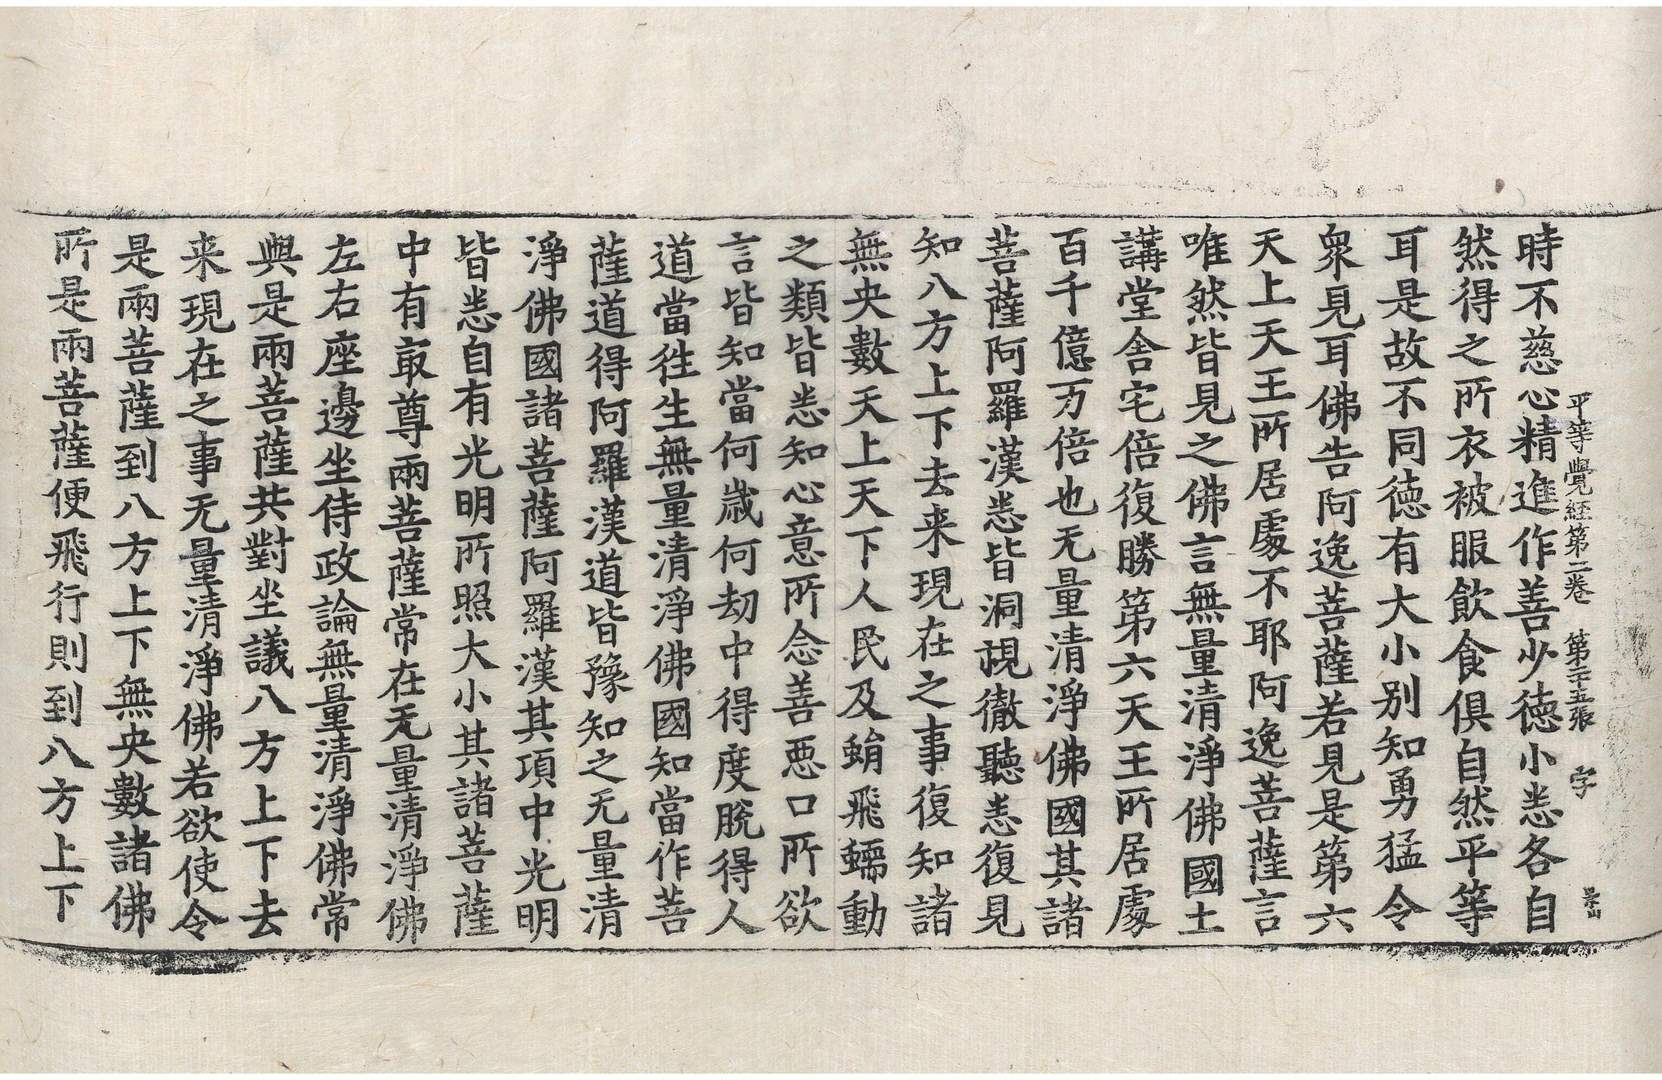 平等覺経第二卷 第二十五張 字
時不慈心精進作善少徳小悉各自
然得之所衣被服飲食俱自然平等
耳是故不同徳有大小别知勇猛令
衆見耳佛告阿逸菩薩若見是第六
天上天王所居處不耶阿逸菩薩言
唯然皆見之佛言無量清淨佛國土
講堂舍宅倍復勝第六天王所居處
百千億万倍也无量清淨佛國其諸
菩薩阿羅漢悉皆洞視徹聽悉復見
知八方上下去来現在之事復知諸
無央數天上天下人民及蜎飛蠕動
之類皆悉知心意所念善惡口所欲
言皆知當何歳何劫中得度脫得人
道當徃生無量清淨佛國知當作菩
薩道得阿羅漢道皆豫知之无量清
淨佛國諸菩薩阿羅漢其項中光明
皆悉自有光明所照大小其諸菩薩
中有㝡尊兩菩薩常在无量清淨佛
左右座邊坐侍政論無量清淨佛常
與是兩菩薩共對坐議八方上下去
来現在之事无量清淨佛若欲使令
是兩菩薩到八方上下無央數諸佛
所是兩菩薩便飛行則到八方上下